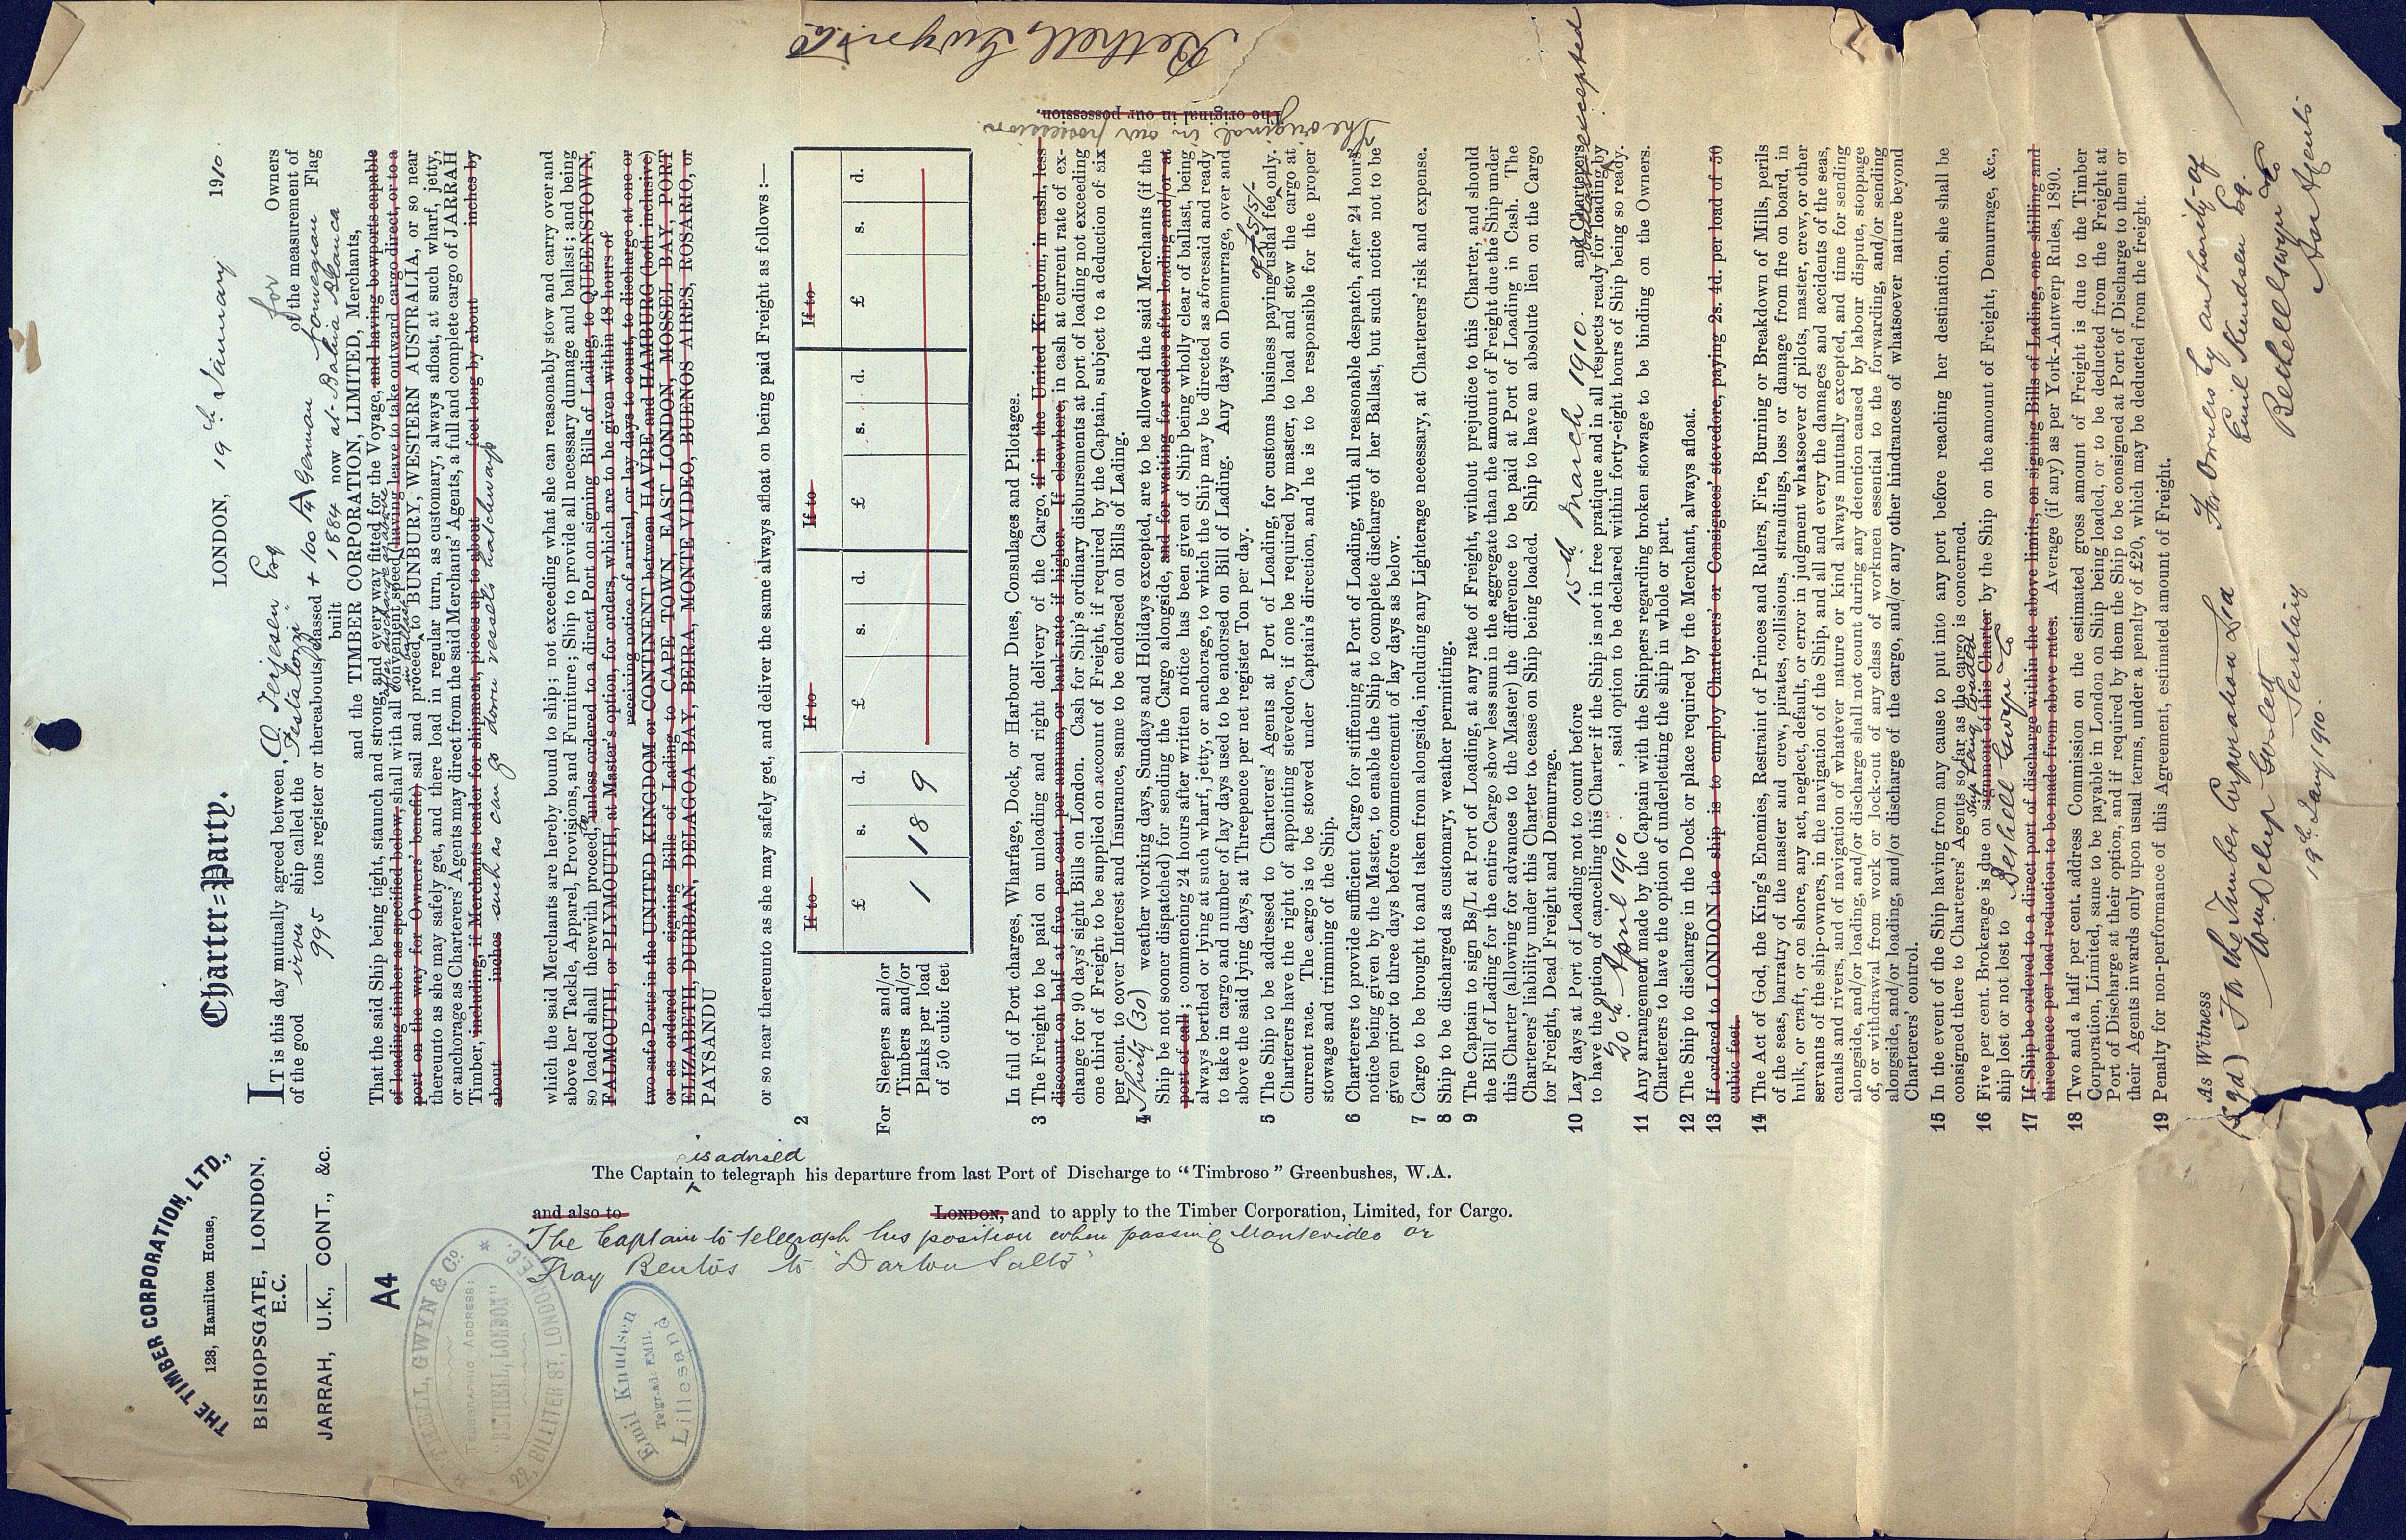 THE TIMBER CORPORATION, LTD.,
128, Hamilton House,
BISHOPSGATE, LONDON,
E.C.
JARRAH, U.K., CONT., &c.
A4
BETHELL, GWYN & Co.
TELEGRAPHIC ADDRESS:
"BETHELL, LONDON"
22, BILLITER ST., LONDON, E.C.
Emil Knudsen
Telgr.ad: EMIL
Lillesand
Charter=Party.
LONDON, 19th January 1910.
It is this day mutually agreed between, O. Terjesen Esq for Owners
of the good iron ship called the "Pestalozzi" classed + 100 A German Norwegian Flag of the measurement of
995 tons register or thereabouts, built 1884 now at Bahia Blanca
and the TIMBER CORPORATION, LIMITED, Merchants,
That the said Ship being tight, staunch and strong, and every way fitted for the Voyage, and having bowports capable
of loading timber as specified below, shall with all convenient speed (having leave to take outward cargo direct, or to a
after discharge of above
port on the way for Owners' benefit) sail and proceed to BUNBURY, WESTERN AUSTRALIA, or so near
thereunto as she may safely get, and there load in regular turn, as customary, always afloat, at such wharf, jetty,
or anchorage as Charterers' Agents may direct from the said Merchants' Agents, a full and complete cargo of JARRAH
Timber, including, if Merchants tender for shipment, pieces up to about feet long by about inches by
about inches such as can go down vessels hatchways
which the said Merchants are hereby bound to ship; not exceeding what she can reasonably stow and carry over and
above her Tackle, Apparel, Provisions, and Furniture; Ship to provide all necessary dunnage and ballast; and being
so loaded shall therewith proceed, to unless ordered to a direct Port on signing Bills of Lading, to QUEENSTOWN,
FALMOUTH, or PLYMOUTH, at Master's option, for orders, which are to be given within 48 hours of
receiving notice of arrival, or lay days to count, to discharge at one or
two safe Ports in the UNITED KINGDOM or CONTINENT between HAVRE and HAMBURG (both inclusive)
or as ordered on signing Bills of Lading to CAPE TOWN, EAST LONDON, MOSSEL BAY, PORT
ELIZABETH, DURBAN, DELAGOA BAY, BEIRA, MONTE VIDEO, BUENOS AIRES, ROSARIO, or
PAYSANDU
or so near thereunto as she may safely get, and deliver the same always afloat on being paid Freight as follows:—
2
If to If to If to If to
£ s. d. £ s. d. £ s. d. £ s. d.
For Sleepers and/or
Timbers and/or
Planks per load
of 50 cubic feet
1 18 9
In full of Port charges, Wharfage, Dock, or Harbour Dues, Consulages and Pilotages.
3 The Freight to be paid on unloading and right delivery of the Cargo, if in the United Kingdom, in cash, less
discount on half at five per cent. per annum, or bank rate if higher. If elsewhere, in cash at current rate of ex-
change for 90 days' sight Bills on London. Cash for Ship's ordinary disbursements at port of loading not exceeding
one third of Freight to be supplied on account of Freight, if required by the Captain, subject to a deduction of six
per cent. to cover Interest and Insurance, same to be endorsed on Bills of Lading.
4 Thirty (30) weather working days, Sundays and Holidays excepted, are to be allowed the said Merchants (if the
Ship be not sooner dispatched) for sending the Cargo alongside, and for waiting for orders after loading and/or at
port of call; commencing 24 hours after written notice has been given of Ship being wholly clear of ballast, being
always berthed or lying at such wharf, jetty, or anchorage, to which the Ship may be directed as aforesaid and ready
to take in cargo and number of lay days used to be endorsed on Bill of Lading. Any days on Demurrage, over and
above the said lying days, at Threepence per net register Ton per day.
5 The Ship to be addressed to Charterers' Agents at Port of Loading, for customs business paying usual fee only.
of £5/5/-
Charterers have the right of appointing stevedore, if one be required by master, to load and stow the cargo at
current rate. The cargo is to be stowed under Captain's direction, and he is to be responsible for the proper
stowage and trimming of the Ship.
6 Charterers to provide sufficient Cargo for stiffening at Port of Loading, with all reasonable despatch, after 24 hours'
notice being given by the Master, to enable the Ship to complete discharge of her Ballast, but such notice not to be
given prior to three days before commencement of lay days as below.
7 Cargo to be brought to and taken from alongside, including any Lighterage necessary, at Charterers' risk and expense.
8 Ship to be discharged as customary, weather permitting.
9 The Captain to sign Bs/L at Port of Loading, at any rate of Freight, without prejudice to this Charter, and should
the Bill of Lading for the entire Cargo show less sum in the aggregate than the amount of Freight due the Ship under
this Charter (allowing for advances to the Master) the difference to be paid at Port of Loading in Cash. The
Charterers' liability under this Charter to cease on Ship being loaded. Ship to have an absolute lien on the Cargo
for Freight, Dead Freight and Demurrage.
10 Lay days at Port of Loading not to count before 15th March 1910. and Charterers
to have the option of cancelling this Charter if the Ship is not in free pratique and in all respects ready for loading by
ballast excepted
30th April 1910. , said option to be declared within forty-eight hours of Ship being so ready.
11 Any arrangement made by the Captain with the Shippers regarding broken stowage to be binding on the Owners.
Charterers to have the option of underletting the ship in whole or part.
12 The Ship to discharge in the Dock or place required by the Merchant, always afloat.
13 If ordered to LONDON the ship is to employ Charterers' or Consignees' stevedore, paying 2s. 4d. per load of 50
cubic feet.
14 The Act of God, the King's Enemies, Restraint of Princes and Rulers, Fire, Burning or Breakdown of Mills, perils
of the seas, barratry of the master and crew, pirates, collisions, strandings, loss or damage from fire on board, in
hulk, or craft, or on shore, any act, neglect, default, or error in judgment whatsoever of pilots, master, crew, or other
servants of the ship-owners, in the navigation of the Ship, and all and every the damages and accidents of the seas,
canals and rivers, and of navigation of whatever nature or kind always mutually excepted, and time for sending
alongside, and/or loading, and/or discharge shall not count during any detention caused by labour dispute, stoppage
of, or withdrawal from work or lock-out of any class of workmen essential to the forwarding, and/or sending
alongside, and/or loading, and/or discharge of the cargo, and/or any other hindrances of whatsoever nature beyond
Charterers' control.
15 In the event of the Ship having from any cause to put into any port before reaching her destination, she shall be
consigned there to Charterers' Agents so far as the cargo is concerned.
ship being loaded
16 Five per cent. Brokerage is due on signment of this Charter by the Ship on the amount of Freight, Demurrage, &c.,
ship lost or not lost to Bethell Gwyn & Co
17 If Ship be ordered to a direct port of discharge within the above limits, on signing Bills of Lading, one shilling and
threepence per load reduction to be made from above rates. Average (if any) as per York-Antwerp Rules, 1890.
18 Two and a half per cent. address Commission on the estimated gross amount of Freight is due to the Timber
Corporation, Limited, same to be payable in London on Ship being loaded, or to be deducted from the Freight at
Port of Discharge at their option, and if required by them the Ship to be consigned at Port of Discharge to them or
their Agents inwards only upon usual terms, under a penalty of £20, which may be deducted from the freight.
19 Penalty for non-performance of this Agreement, estimated amount of Freight.
As Witness
(sgd) For the Timber Corporation Ltd
Secretary
19th Jany 1910.
For Owners by authority of
Emil Knudsen Esq.
Bethell Gwyn & Co
As Agents
The Captain is advised to telegraph his departure from last Port of Discharge to "Timbroso" Greenbushes, W.A.
and also to LONDON, and to apply to the Timber Corporation, Limited, for Cargo.
The Captain to telegraph his position when passing Montevideo or
Fray Bentos to "Darton Salts"
The original in our possession.
The original in our possession.
Bethell, Gwyn & Co